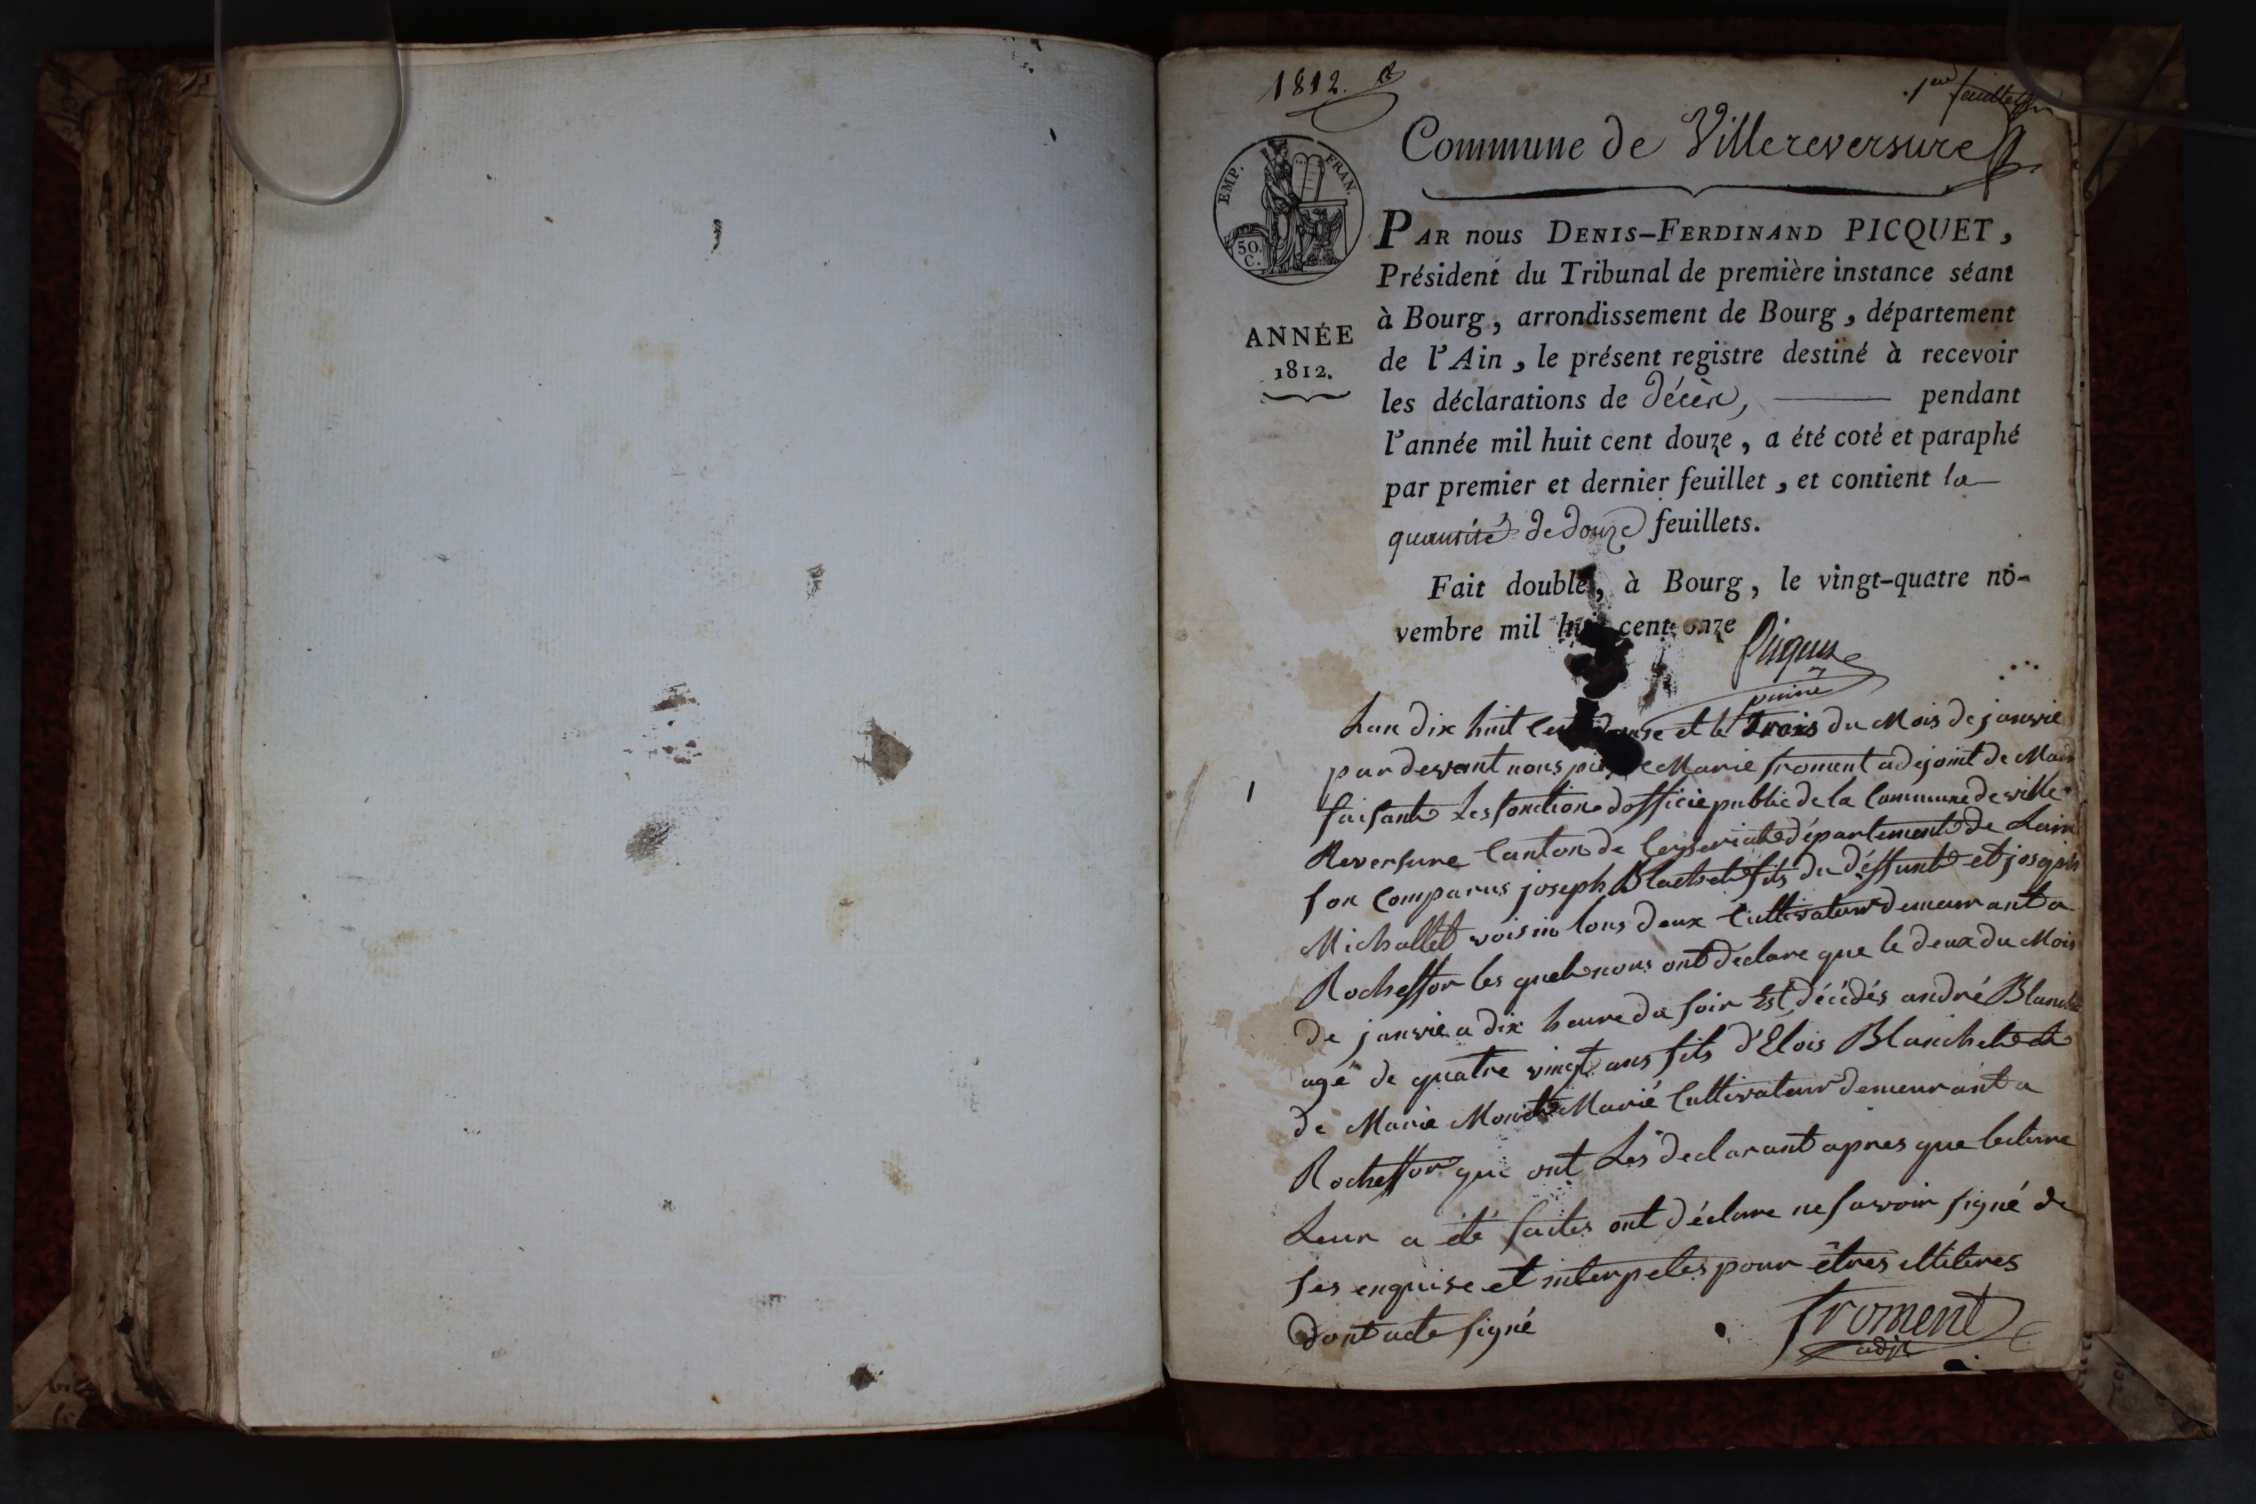 1812.
1er feuillet
Commune de Villereversure
EMP. FRAN.
50 C.
ANNÉE
1812.
PAR nous DENIS-FERDINAND PICQUET,
Président du Tribunal de première instance séant
à Bourg, arrondissement de Bourg, département
de l'Ain, le présent registre destiné à recevoir
les déclarations de décès, pendant
l'année mil huit cent douze, a été coté et paraphé
par premier et dernier feuillet, et contient la
quantité de douze feuillets.
Fait double, à Bourg, le vingt-quatre no-
vembre mil huit cent onze
Picquet
Lan dix huit Cent douse et le trois du Mois de janvie
1
par devant nous pierre Marie froment adejoint de Maire
faisant Les fonction dofficie public de la Commune de ville
Reversure Canton de Ceyseriat département de Lain
son Comparus joseph Blachet fils du déffunt et joseph
Michallet voisin tous deux Cultivateur demeurant a
Rocheffor les quels nous ont declare que le deux du Mois
de janvie a dix heure du soir Est décédés andré Blanchet
agé de quatre vingt ans fils d'Elois Blanchet et
de Marie Marié Cultivateur demeurant a
Rocheffor qui ont Les declarant apres que lecture
Leur a été faites ont déclare ne savoir signé de
ses enquise et interpeles pour êtres illiteres
dont acte signé
froment
adjt